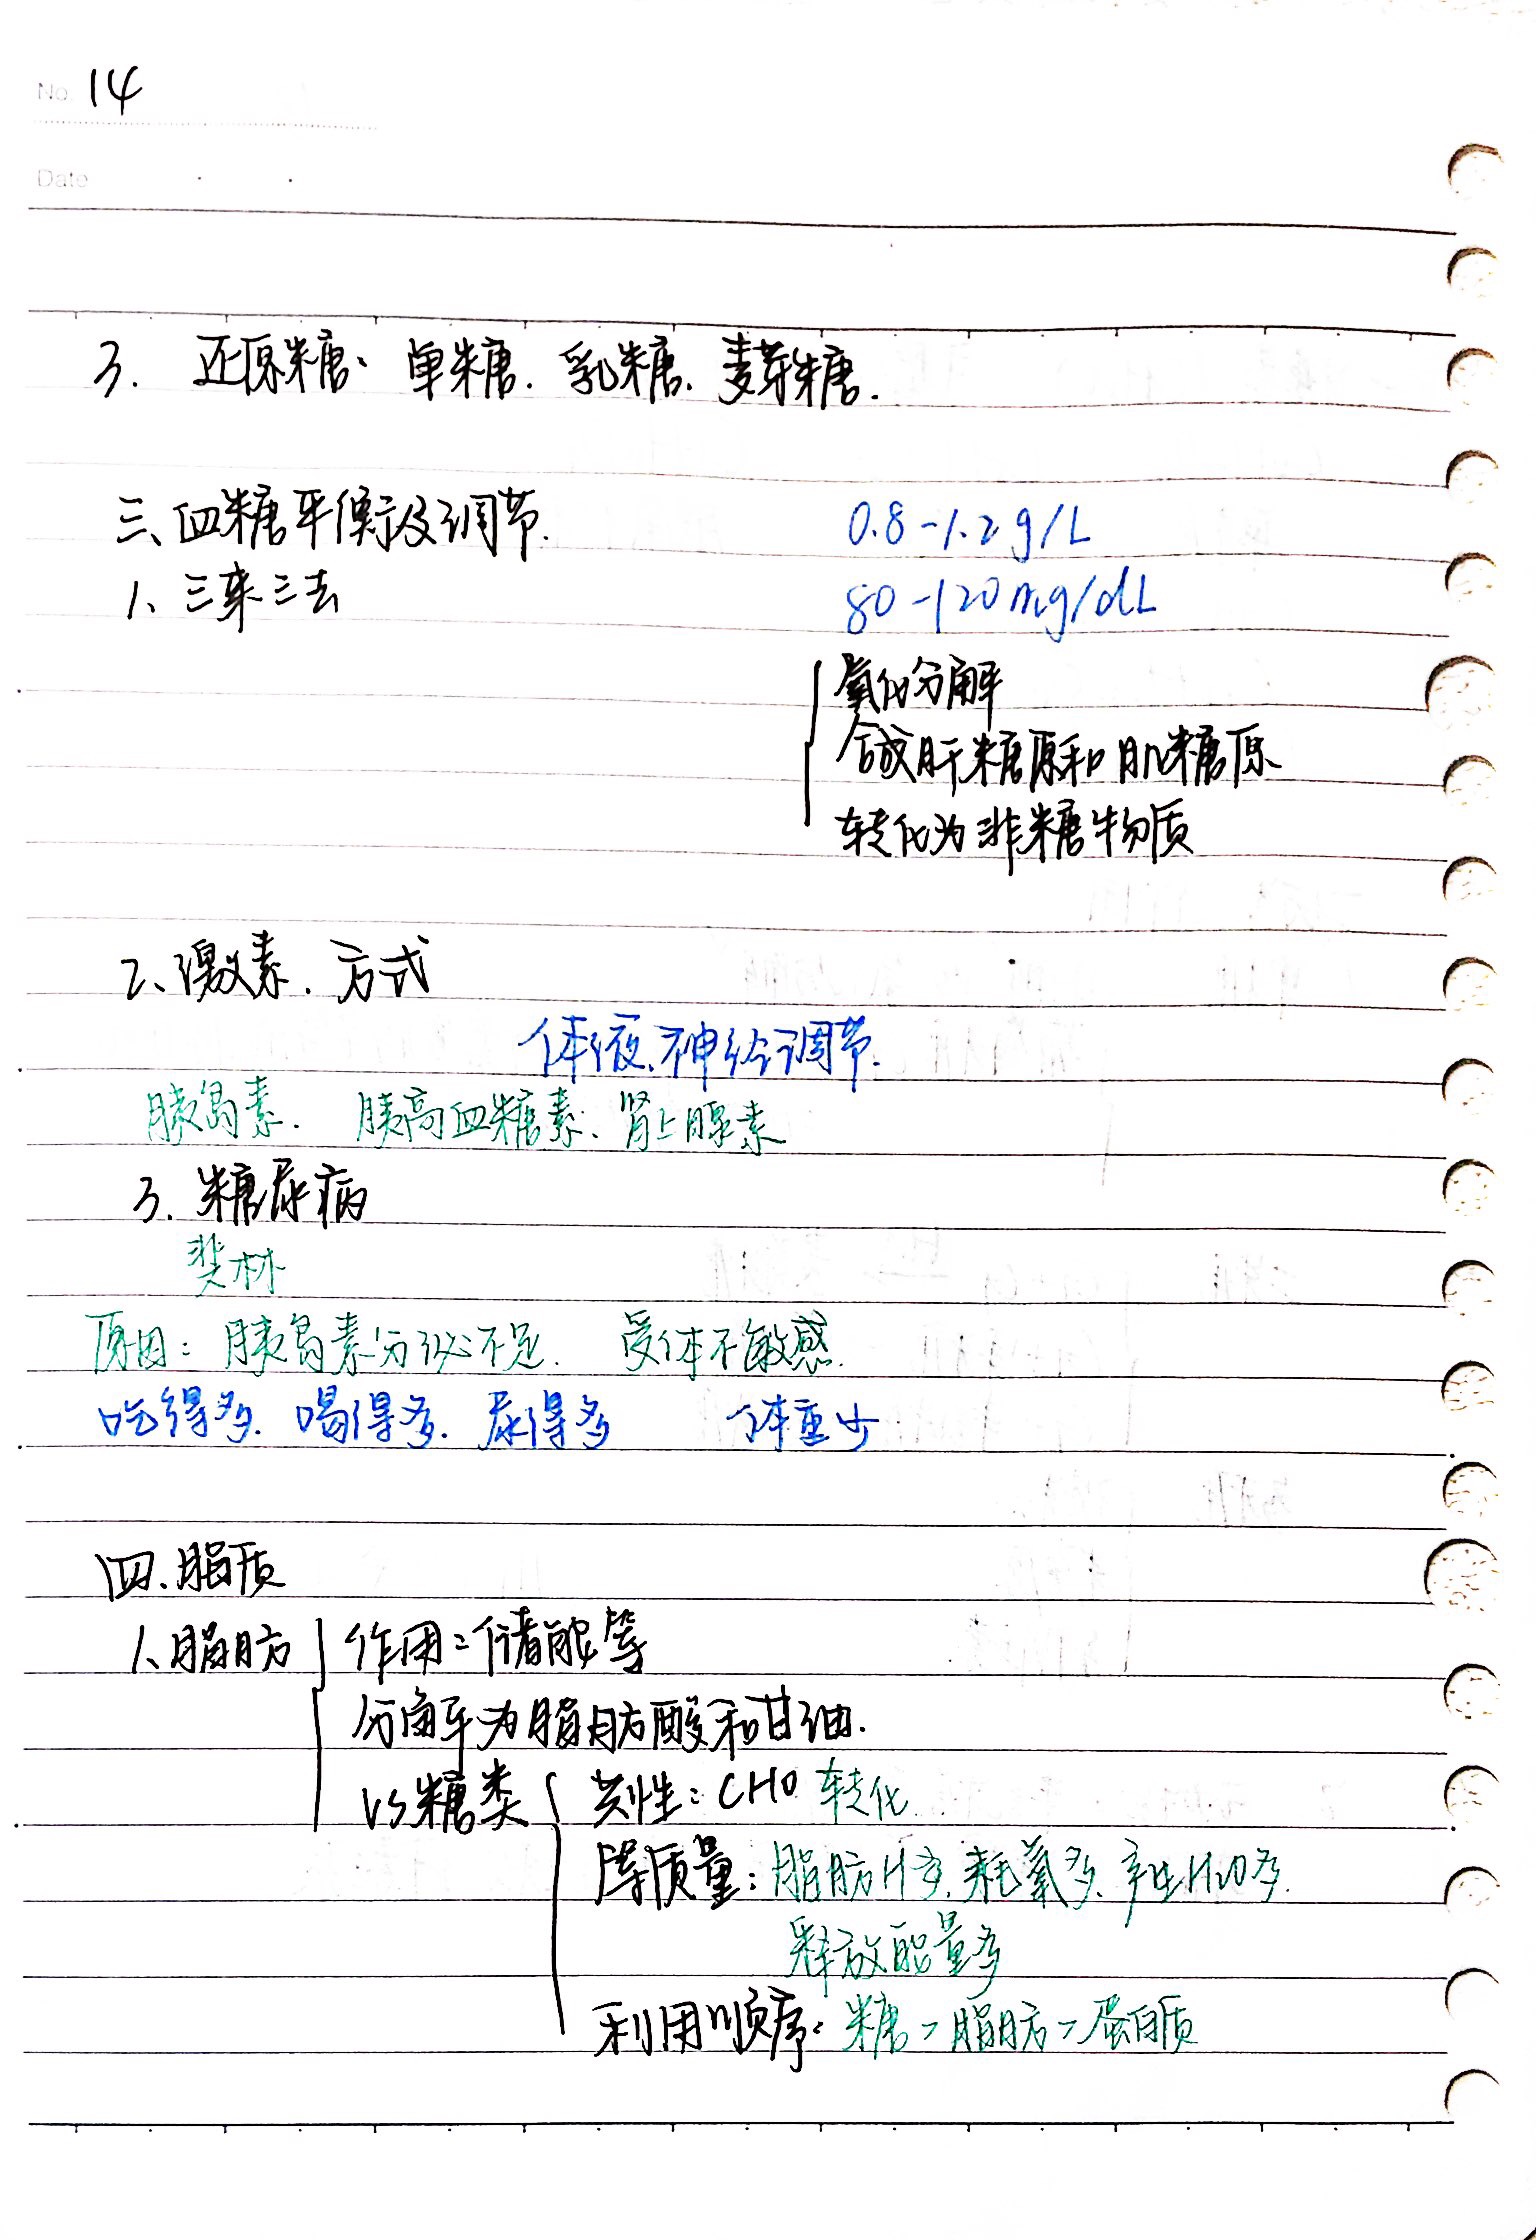 No. 14
Date
3. 还原糖、单糖、乳糖、麦芽糖.
三、血糖平衡及调节.
0.8-1.2g/L
1、三来三去
80-120mg/dL
氧化分解
合成肝糖原和肌糖原
转化为非糖物质
2、激素、方式
体液、神经调节.
胰岛素. 胰高血糖素、肾上腺素
3. 糖尿病
斐林
原因: 胰岛素分泌不足. 受体不敏感.
吃得多. 喝得多. 尿得多 体重少
四、脂质
1、脂肪 作用: 储能等
分解为脂肪酸和甘油.
VS糖类 共性: CHO 转化
等质量: 脂肪H多、耗氧多、产生H2O多.
释放能量多
利用顺序: 糖>脂肪>蛋白质